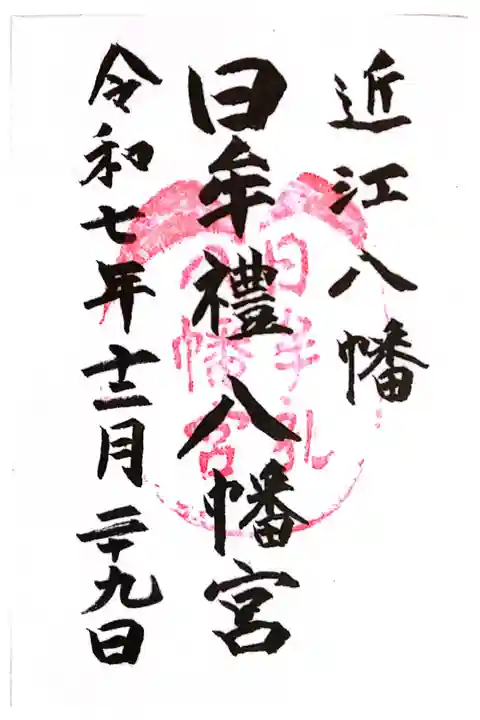 近江八幡
日牟禮八幡宮
日牟礼
八幡宮
令和七年十二月二十九日